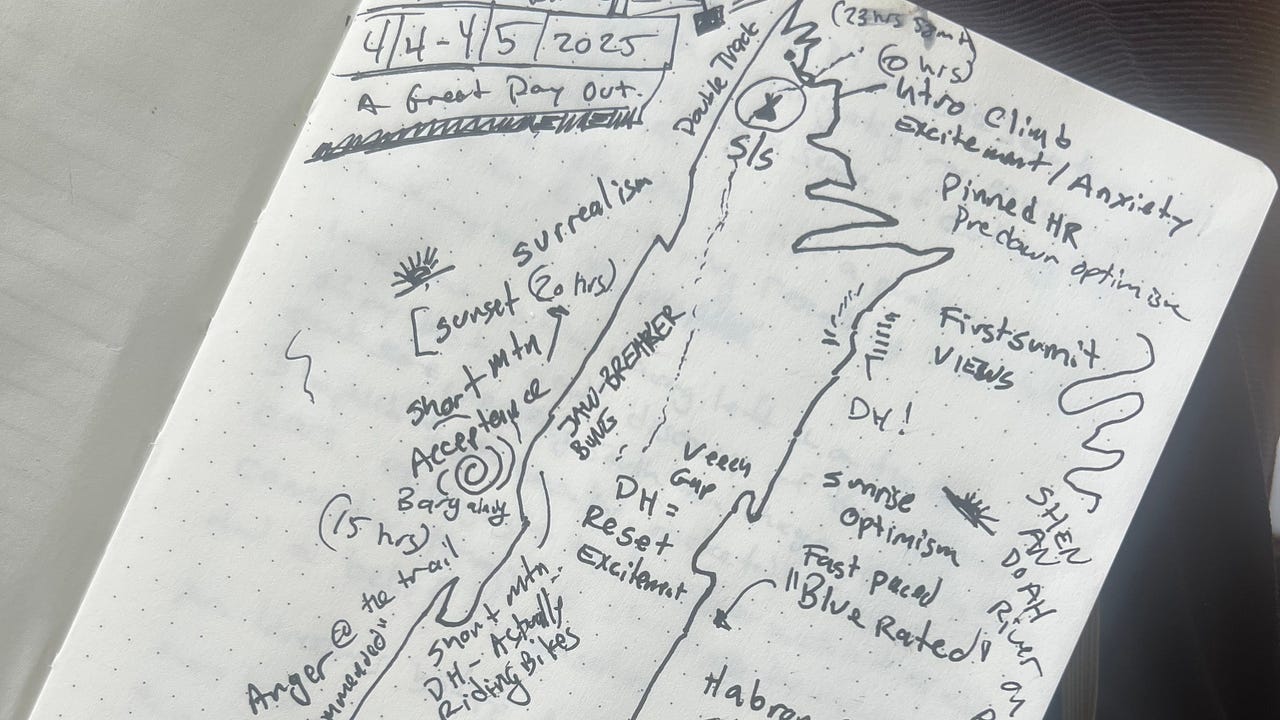 4/4-4/5 2025
A Great Day Out.
Double Track
(23 hrs 50mt)
(0 hrs)
Intro Climb
Excitement/Anxiety
Pinned HR
Predawn optimism
X
S/S
surrealism
[sunset (20 hrs)
short mtn
Acceptance
Bargaining
(15 hrs)
Anger @ the trail
JAW-BREAKER
First sumit
VIEWS
DH!
Veech
Gap
DH =
Reset
Excitement
sunrise
Optimism
Fast paced
"Blue Rated"
short mtn
DH - Actually
Riding Bikes
SHENANDOAH River on